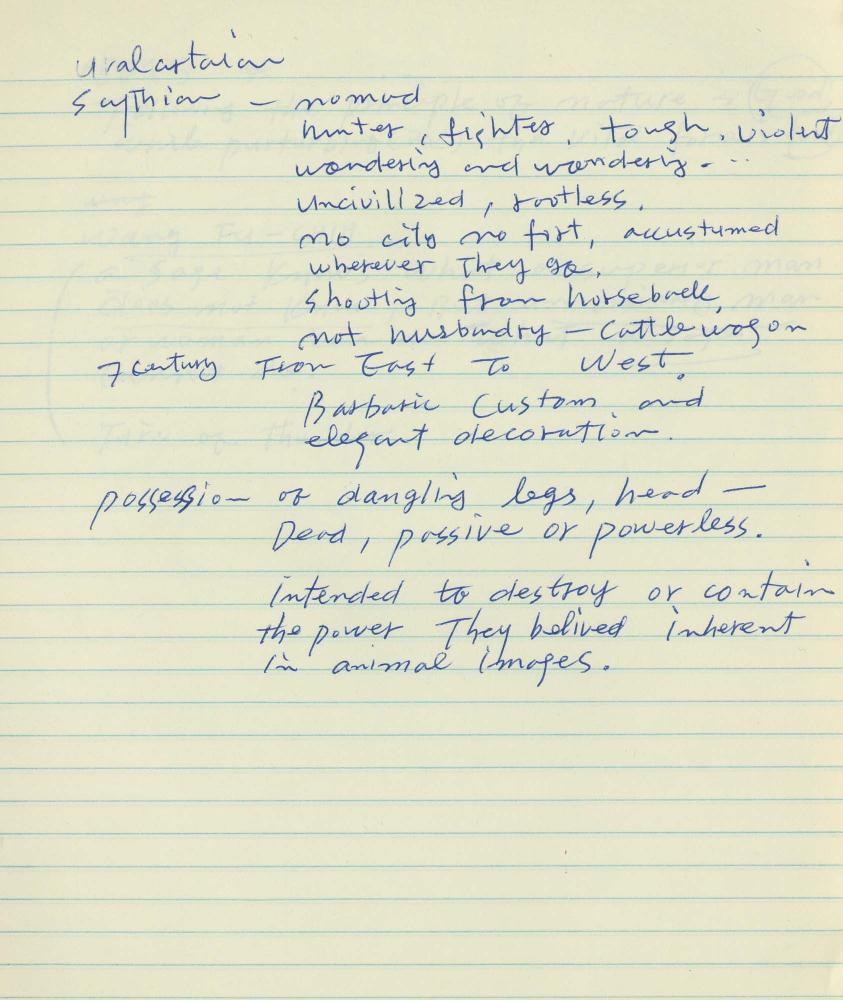 uralartaian
Scythian – nomad
hunter, fighter, tough, violent
wondering and wandering. ..
uncivilized, rootless.
no city no fort, accustumed
wherever They go,
shooting from horseback,
not husbandry – cattle wagon
7 century From East To West.
Barbaric Custom and
elegant decoration.
possession of dangling legs, head –
Dead, passive or powerless.
intended to destroy or contain
the power They belived inherent
in animal images.